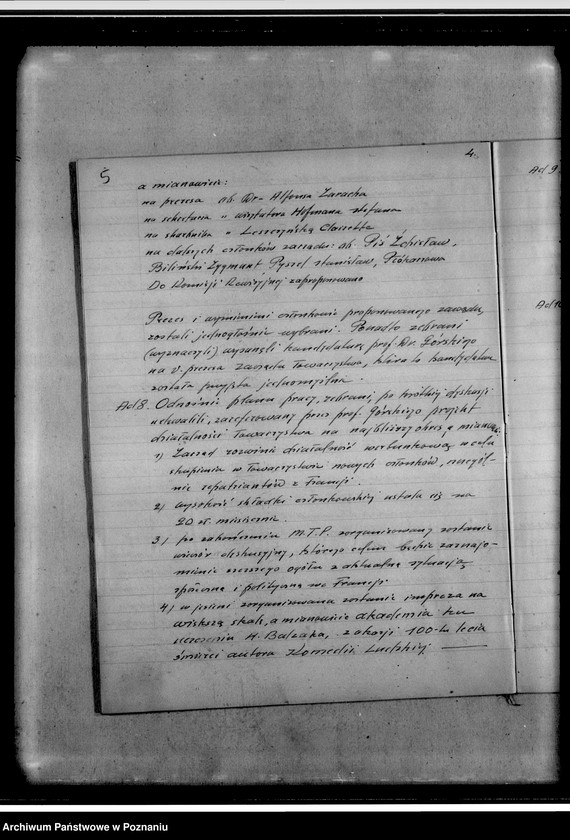 5
4.
a mianowicie:
na prezesa ob. Dr. Alfonsa Zaracha
na sekretarza " Hofmana Stefana
na skarbnika " Leszczyńską
na dalszych członków zarządu: ob. Piś Zdzisław,
Biliński Zygmunt Pyszel Stanisław,
Do Komisji Rewizyjnej zaproponowano
Prezes i wymienieni członkowie proponowanego zarządu,
zostali jednogłośnie wybrani. Ponadto zebrani
(wyznaczyli) wysunęli kandydaturę prof. Dr. Górskiego
na v. prezesa zarządu Towarzystwa, która to kandydatura
została przyjęta jednomyślnie.
Ad 8. Odnośnie planu pracy, zebrani, po krótkiej dyskusji
uchwalili, zareferowany przez prof. Górskiego projekt
działalności Towarzystwa na najbliższy okres, a mianow.
1) Zarząd rozwinie działalność werbunkową w celu
skupienia w Towarzystwie nowych członków, szczegól-
nie repatriantów z Francji.
2) wysokość składki członkowskiej ustala się na
20 zł. miesięcznie.
3) po zakończeniu M.T.P. zorganizowany zostanie
wieczór dyskusyjny, którego celem będzie zaznajo-
mienie szerszego ogółu z aktualną sytuacją
społeczną i polityczną we Francji
4) w jesieni zorganizowana zostanie impreza na
większą skalę, a mianowicie akademia ku
uczczeniu H. Balzaka, z okazji 100-tu lecia
śmierci autora Komedii Ludzkiej
Ad 9.
Archiwum Państwowe w Poznaniu